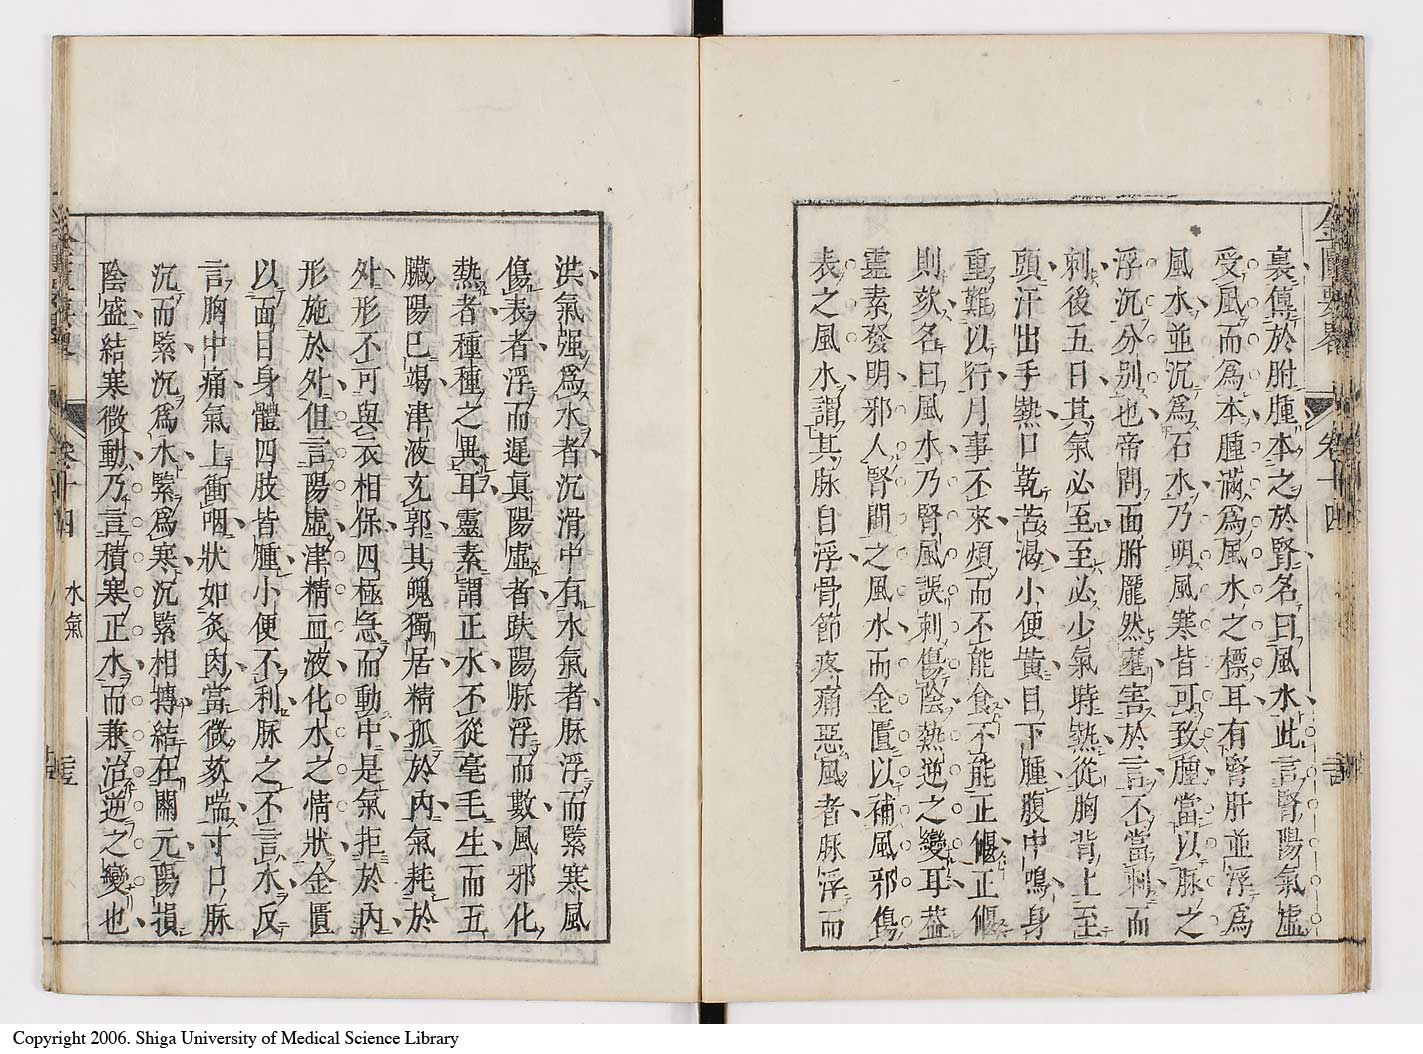 裏傳於胕腫本之於腎名曰風水此言腎陽氣虛
受風而爲本腫滿爲風水之標耳有腎肝並浮爲
風水並沉爲石水乃明風寒皆可致腫當以脉之
浮沉分别也帝問面胕龎然壅害於言不當刺而
刺後五日其氣必至至必少氣時熱從胸背上至
頭汗出手熱口乾苦渴小便黄目下腫腹中鳴身
重難以行月事不來煩而不能食不能正偃正偃
則欬名曰風水乃腎風誤刺傷陰熱逆之變耳葢
靈素發明邪人腎間之風水而金匱以補風邪傷
表之風水謂其脉自浮骨節疼痛惡風者脉浮而
洪氣强爲水者沉滑中有水氣者脉浮而緊寒風
傷表者浮而遲眞陽虛者趺陽脉浮而數風邪化
熱者種種之異耳靈素謂正水不從毫毛生而五
臟陽已竭津液充郭其魄獨居精孤於內氣耗於
外形不可與衣相保四極急而動中是氣拒於內
形施於外但言陽虛津精血液化水之情狀金匱
以面目身體四肢皆腫小便不利脉之不言水反
言胸中痛氣上衝咽狀如炙肉當微欬喘寸口脉
沉而緊沉爲水緊爲寒沉緊相搏結在關元陽損
陰盛結寒微動乃言積寒正水而兼治逆之變也
金匱要畧
卷十四
卷十四
水氣
Copyright 2006. Shiga University of Medical Science Library